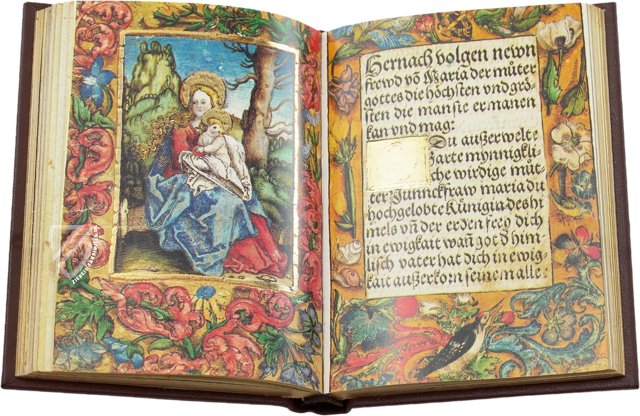 Hernach volgen newn
frewd vō Maria der můter
gottes die höchsten vnd grö-
sten die man sie ermanen
kan vnd mag:
Du außerwelte
Zarte mynnigkli
che wirdige mů
ter Junnckfraw maria du
hochgelobte künigia des hi
mels vn̄ der erden frey dich
in ewigkait wañ got d him
lisch vater hat dich in ewig
kait außerkorn seinē alle: